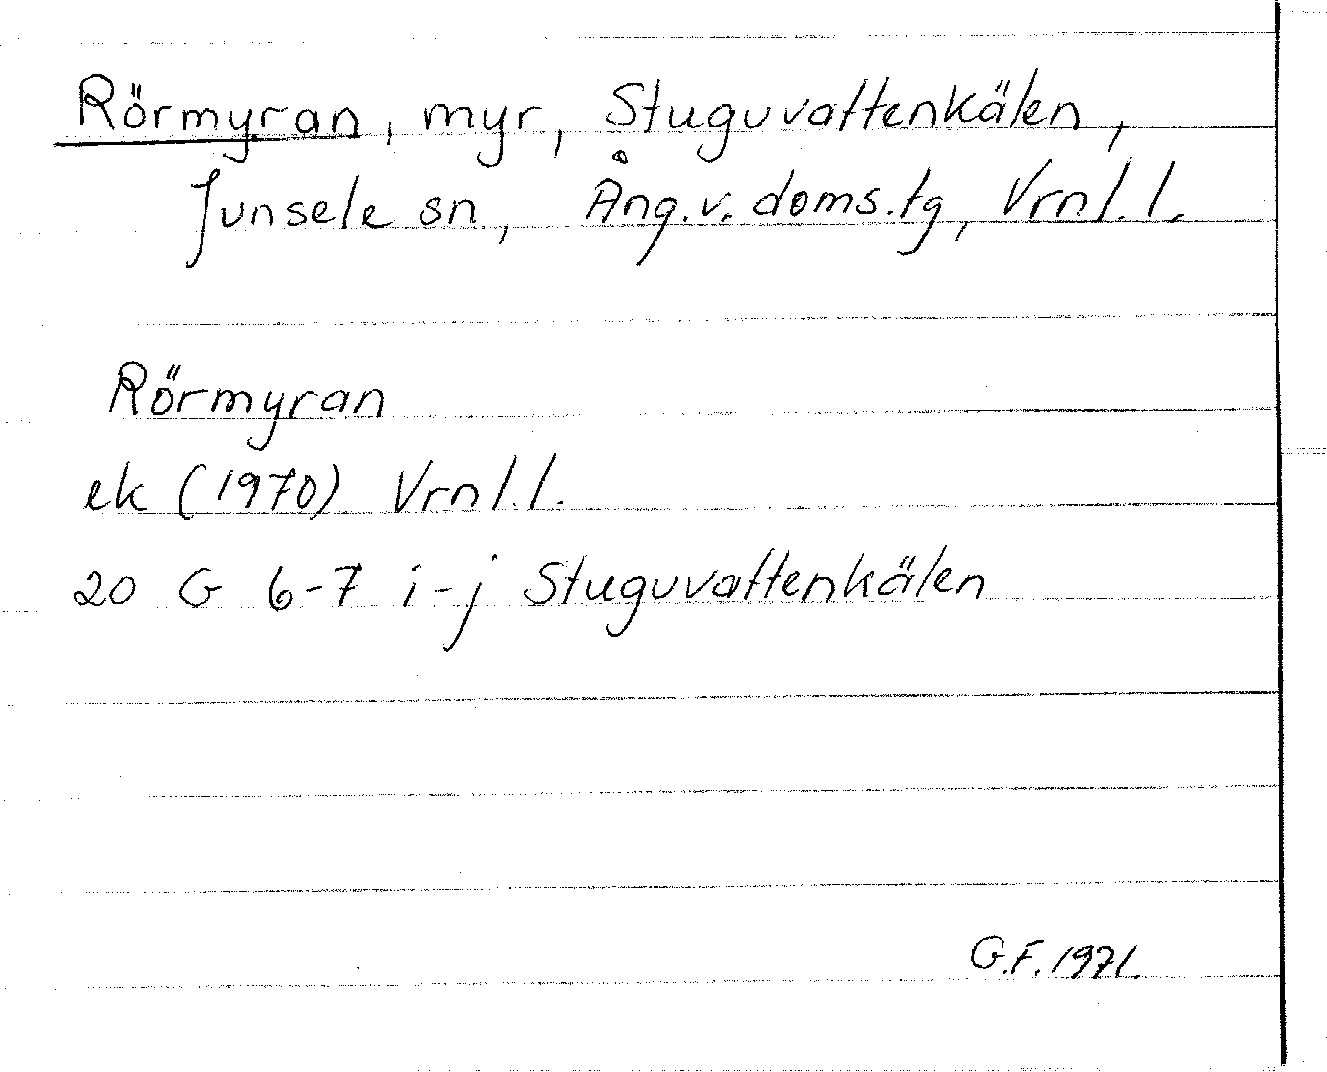 Rörmyran, myr, Stuguvattenkälen,
Junsele sn, Ång.v.doms.tg, Vrnl.l.
Rörmyran
ek (1970) Vrnl.l.
20 G 6-7 i-j Stuguvattenkälen
G.F. 1971.